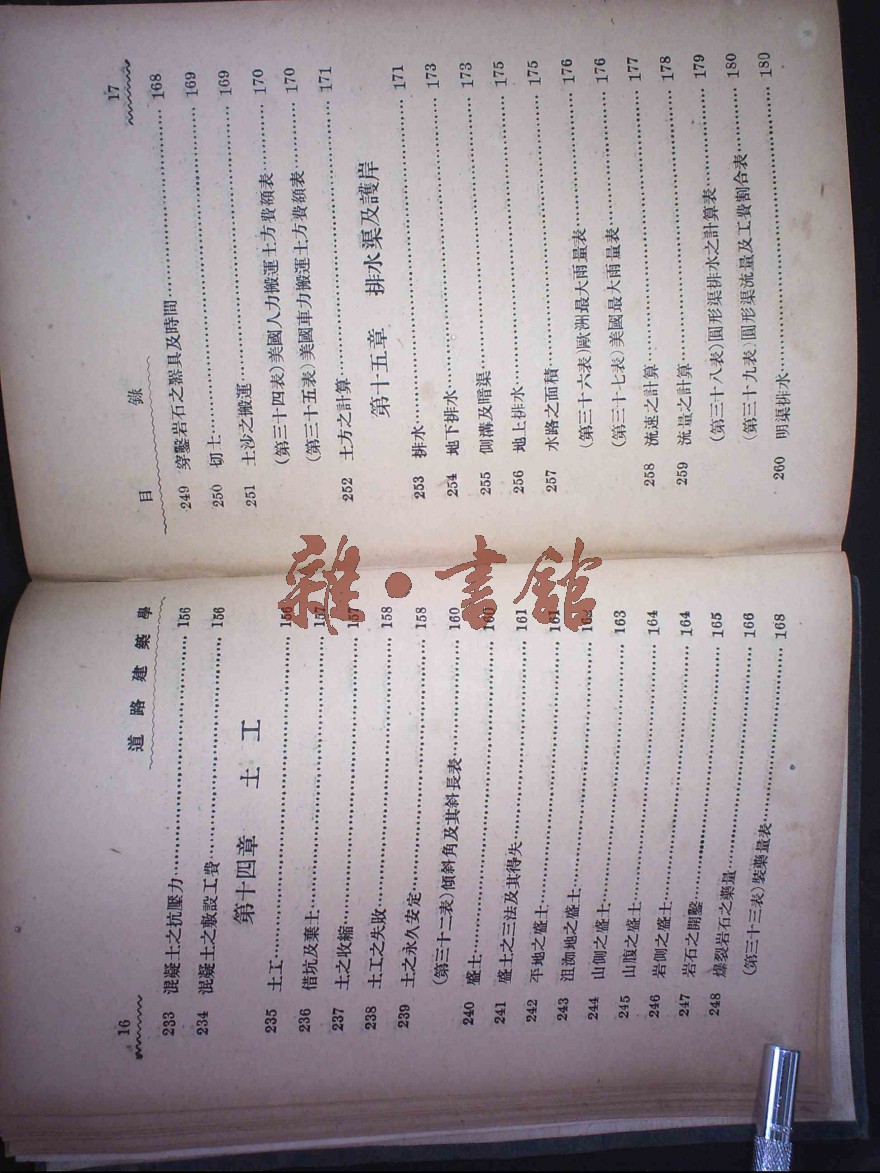 16
道路建築學
233 混凝土之抗壓力 156
234 混凝土之敷設工費 156
第十四章 土工
235 土工 156
236 借坑及棄土 157
237 土之收縮 157
238 土工之失敗 158
239 土之永久安定 158
(第三十二表)傾斜角及其斜長表 160
240 盛土 160
241 盛土之三法及其得失 161
242 平地之盛土 161
243 沮洳地之盛土 162
244 山側之盛土 163
245 山腹之盛土 164
246 岩側之盛土 164
247 岩石之開鑿 165
248 爆裂岩石之藥量 166
(第三十三表)裝藥量表 168
目錄
17
249 穿鑿岩石之器具及時間 168
250 切土 169
251 土沙之搬運 169
(第三十四表)美國人力搬運土方費額表 170
(第三十五表)美國車力搬運土方費額表 170
252 土方之計算 171
第十五章 排水渠及護岸
253 排水 171
254 地下排水 173
255 側溝及暗渠 173
256 地上排水 175
257 水路之面積 175
(第三十六表)歐洲最大雨量表 176
(第三十七表)美國最大雨量表 176
258 流速之計算 177
259 流量之計算 178
(第三十八表)圓形渠排水之計算表 179
(第三十九表)圓形渠流量及工費割合表 180
260 明渠排水 180
雜·書館